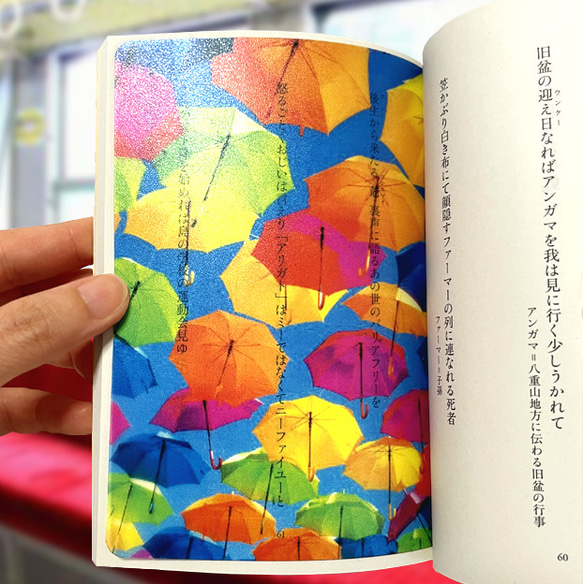 旧盆の迎え日なればアンガマを我は見に行く少しうかれて
ウンケー
アンガマ=八重山地方に伝わる旧盆の行事
笠かぶり白き布にて顔隠すファーマーの列に連なれる死者
ファーマー=子孫
60
後生から来たる
裏声に語るあの世のバリアフリーを
怒るごと
「アリガト」はミーではなくてニーファイユーと
始めれば島の
運動会見ゆ
61